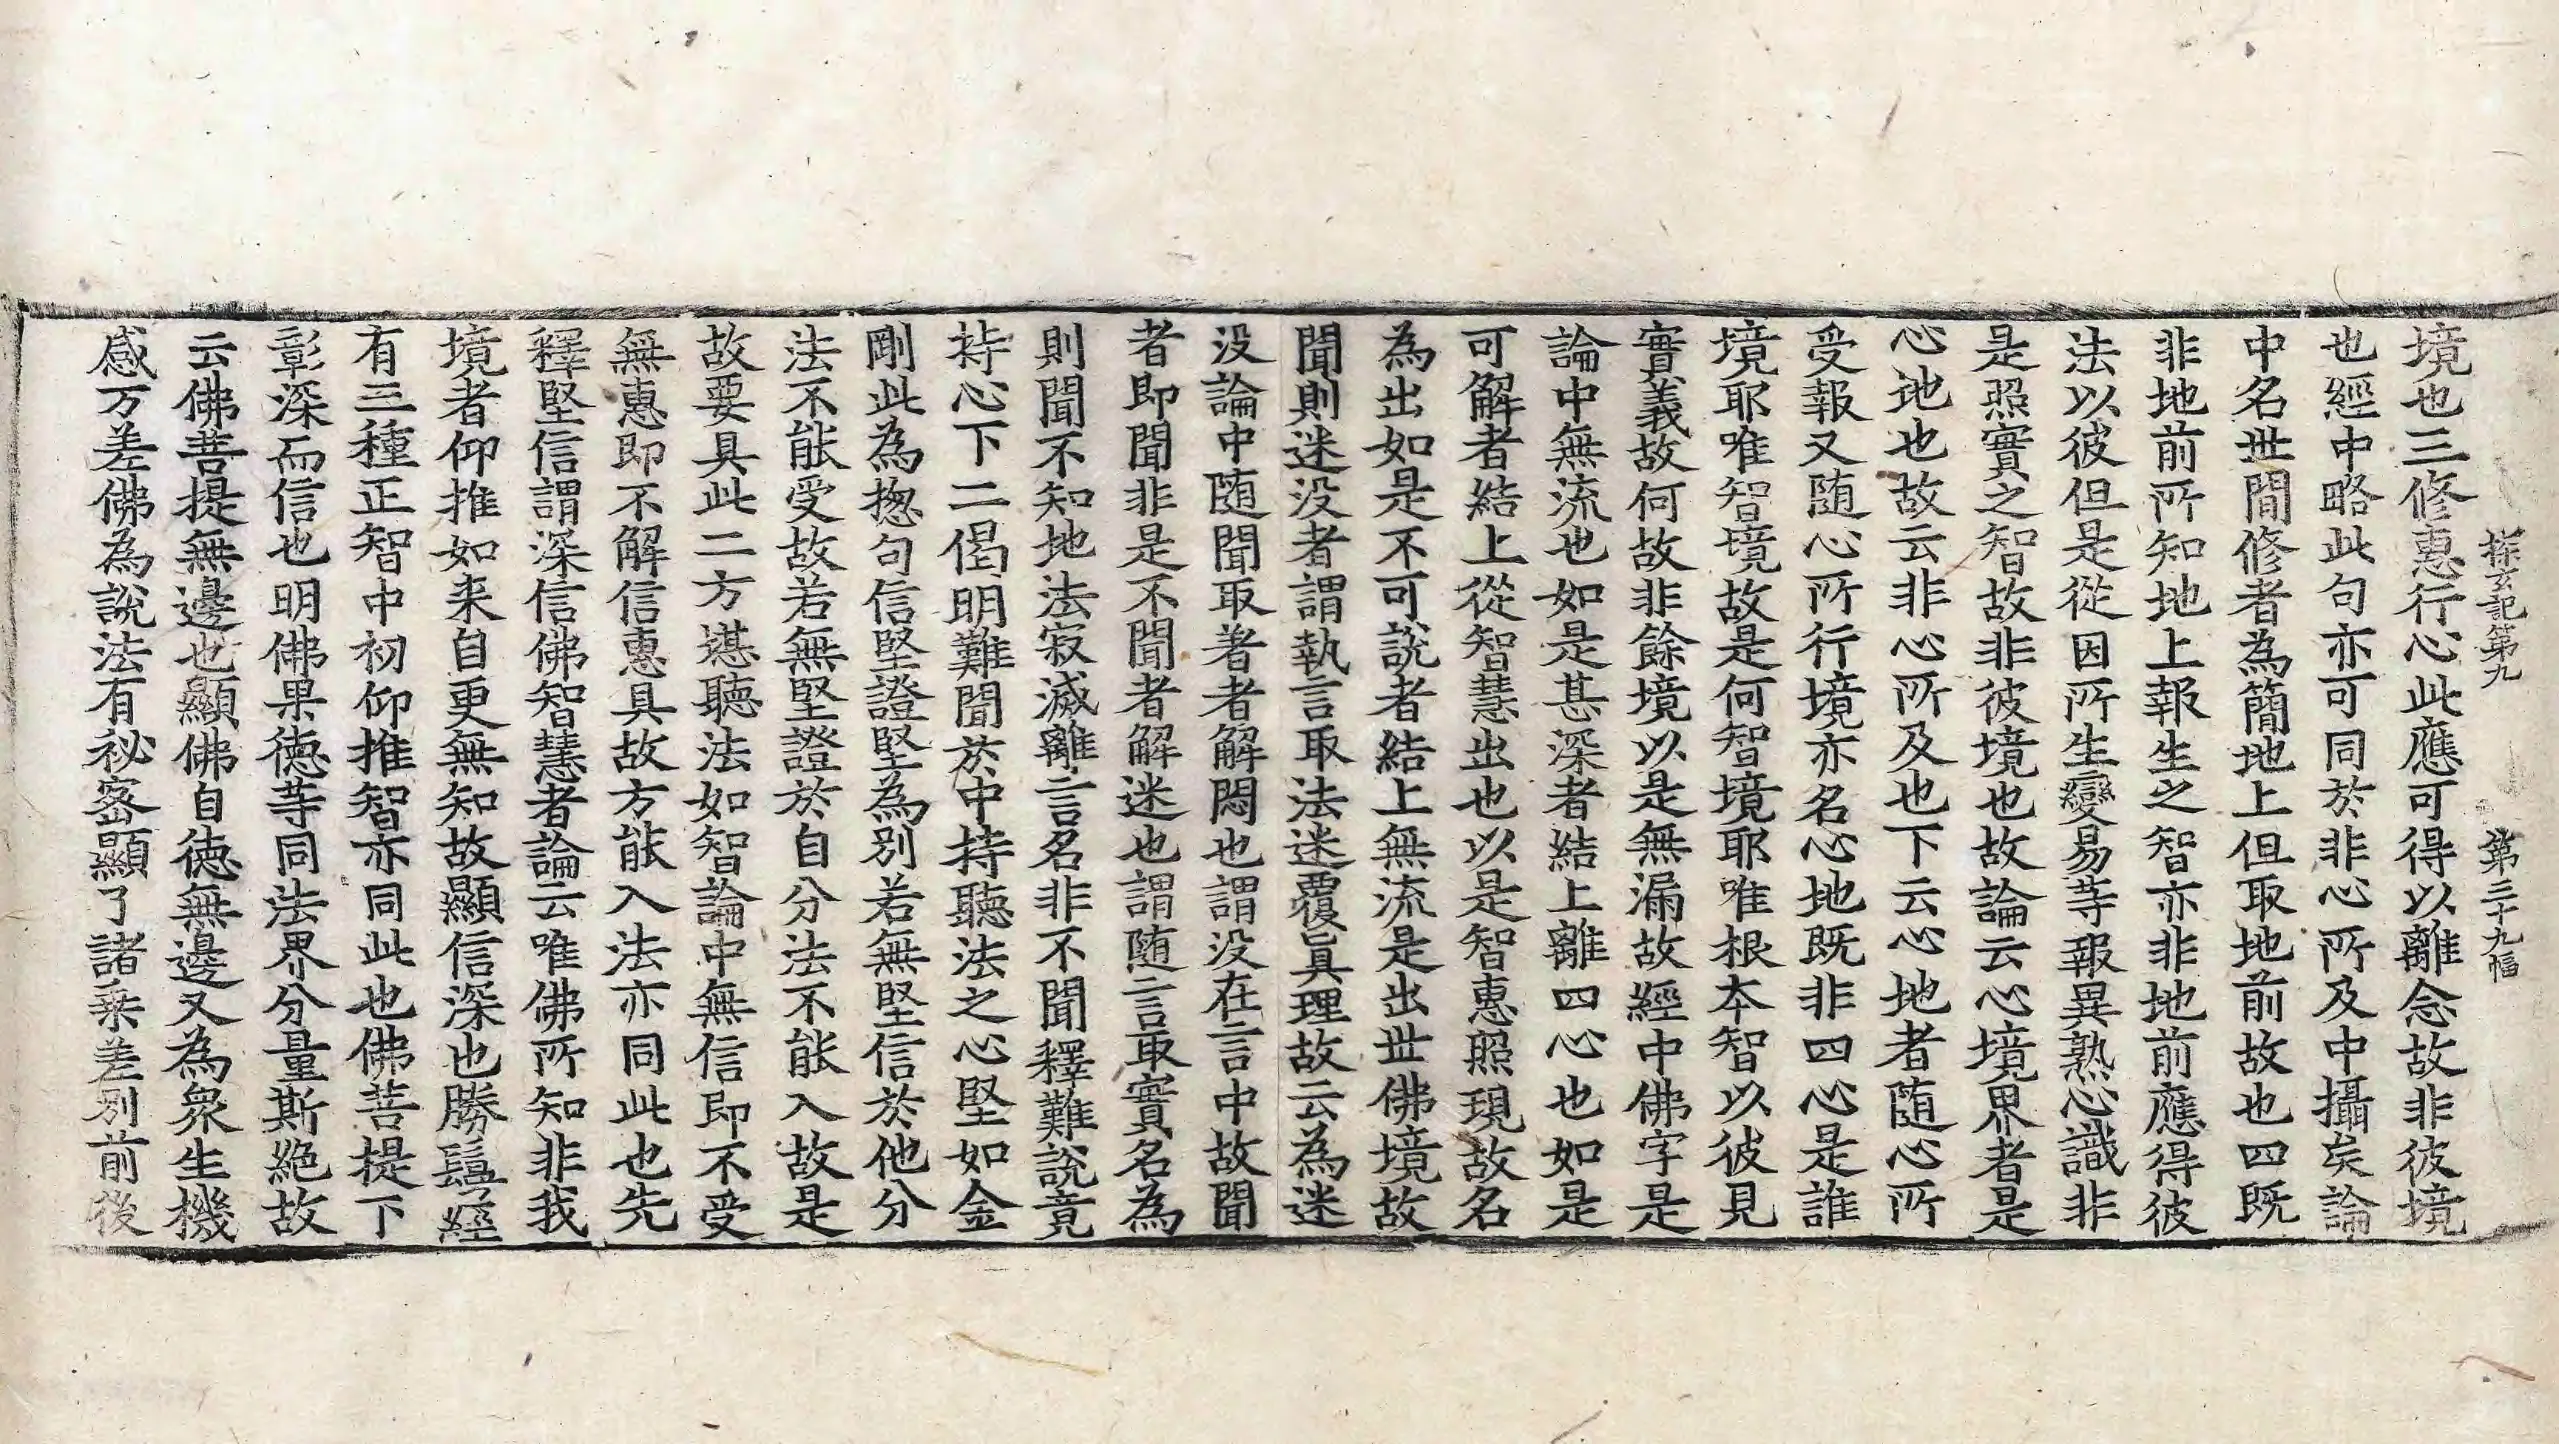 探玄記第九　第三十九幅
境也三修惠行心此應可得以離念故非彼境
也經中略此句亦可同於非心所及中攝矣論
中名世間修者為簡地上但取地前故也四既
非地前所知地上報生之智亦非地前應得彼
法以彼但是從因所生變易等報異熟心識非
是照實之智故非彼境也故論云心境界者是
心地也故云非心所及也下云心地者随心所
受報又随心所行境亦名心地既非四心是誰
境耶唯智境故是何智境耶唯根本智以彼見
實義故何故非餘境以是無漏故經中佛字是
論中無流也如是甚深者結上離四心也如是
可解者結上從智慧出也以是智惠照現故名
為出如是不可說者結上無流是出世佛境故
聞則迷没者謂執言取法迷覆真理故云為迷
没論中随聞取著者解悶也謂没在言中故聞
者即聞非是不聞者解迷也謂随言取實名為
則聞不知地法寂滅離言名非不聞釋難說竟
持心下二偈明難聞於中持聽法之心堅如金
剛此為揔句信堅證堅為別若無堅信於他分
法不能受故若無堅證於自分法不能入故是
故要具此二方堪聽法如智論中無信即不受
無惠即不解信惠具故方能入法亦同此也先
釋堅信謂深信佛智慧者論云唯佛所知非我
境者仰推如来自更無知故顯信深也勝鬘經
有三種正智中初仰推智亦同此也佛菩提下
彰深而信也明佛果德等同法界分量斯絶故
云佛菩提無邊也顯佛自徳無邊又為衆生機
感万差佛為說法有秘密顯了諸乗差別前後